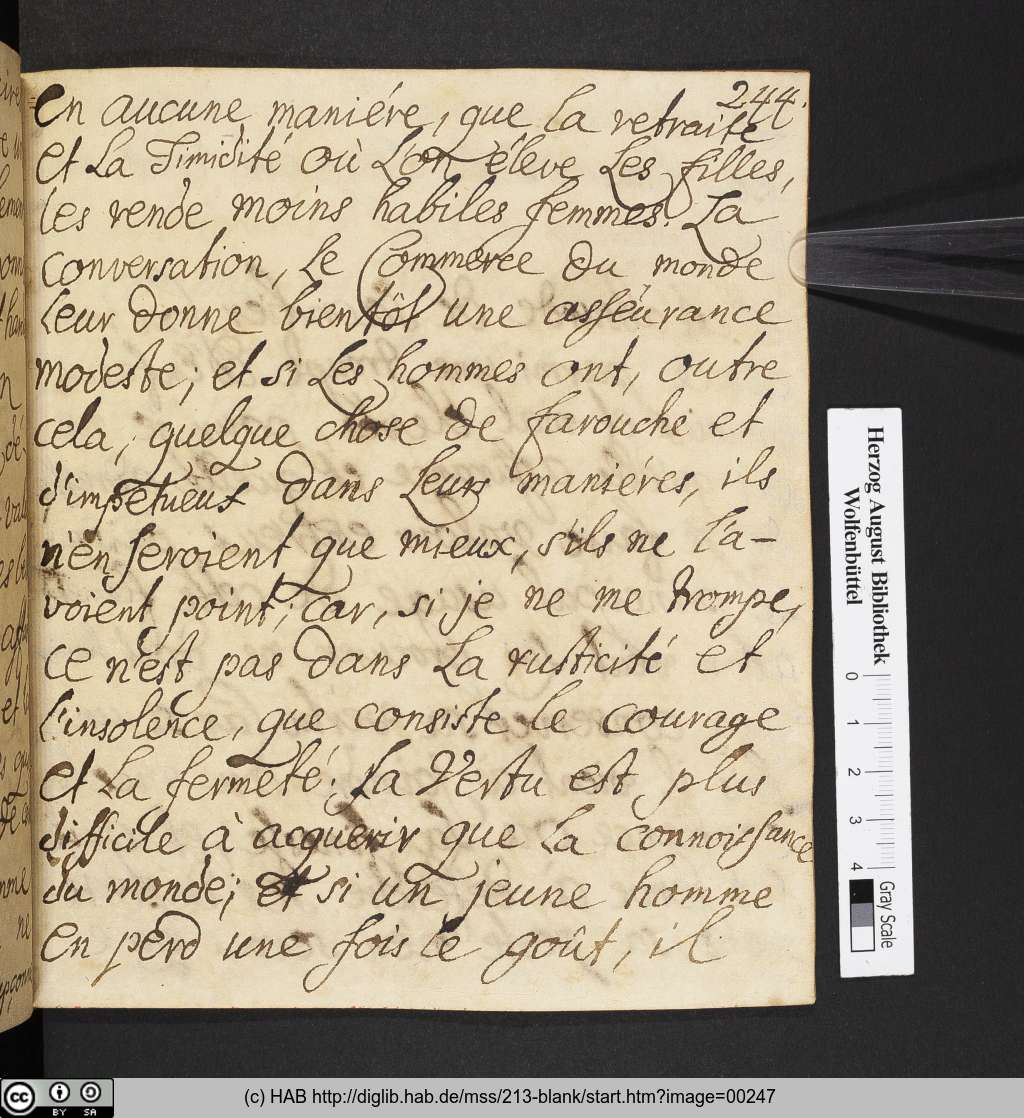 244.
en aucune maniére, que la retraite
et La Timidité où L'on éleve Les filles,
les rende moins habiles femmes. La
conversation, Le Commerce du monde
Leur donne bientôt une asseurance
modeste; et si Les hommes ont, outre
cela, quelque chose de farouche et
d'impetueux dans Leurs maniéres, ils
n'en seroient que mieux, s'ils ne l'a-
voient point; car, si je ne me trompe,
ce n'est pas dans La rusticité et
l'insolence, que consiste le courage
et La fermeté: La Vertu est plus
difficile à acquerir que La connoissance
du monde; et si un jeune homme
en perd une fois le goût, il
Herzog August Bibliothek
Wolfenbüttel
0 1 2 3 4
Gray Scale
cc BY SA
(c) HAB http://diglib.hab.de/mss/213-blank/start.htm?image=00247